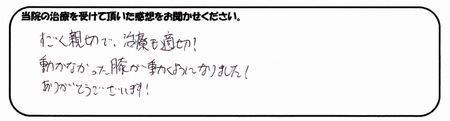 当院の治療を受けて頂いた感想をお聞かせください。
すごく親切で、治療も適切!
動かなかった膝が動くようになりました!
ありがとうございます!